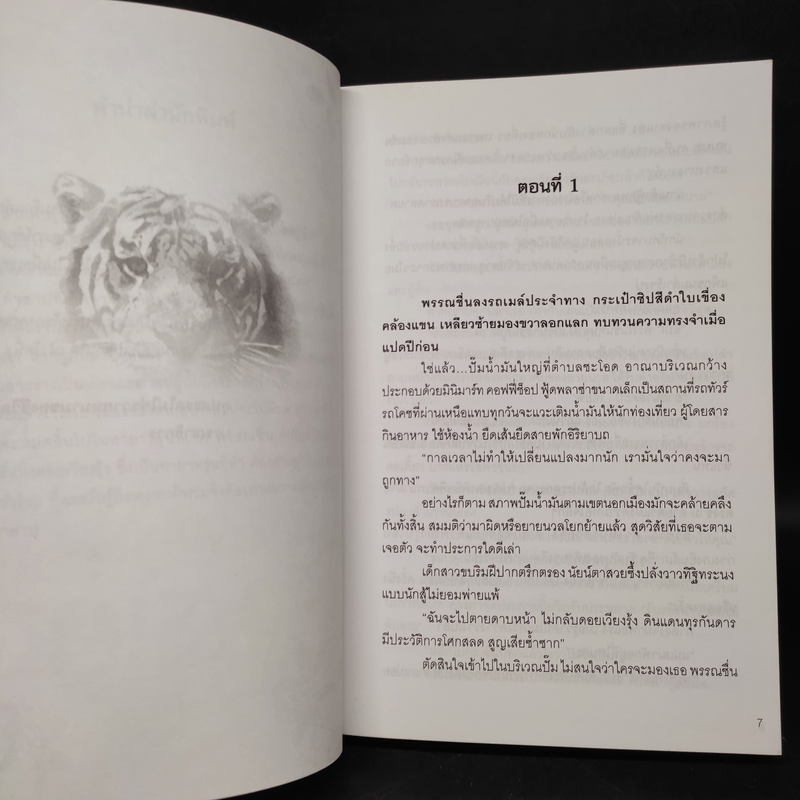 ตอนที่ 1
พรรณชื่นลงรถเมล์ประจำทาง กระเป๋าซิปสีดำใบเขื่อง
คล้องแขน เหลียวซ้ายมองขวาลอกแลก ทบทวนความทรงจำเมื่อ
แปดปีก่อน
ใช่แล้ว...ปั๊มน้ำมันใหญ่ที่ตำบลชะโอด อาณาบริเวณกว้าง
ประกอบด้วยมินิมาร์ท คอฟฟี่ช็อป ฟู้ดพลาซ่าขนาดเล็กเป็นสถานที่รถทัวร์
รถโคชที่ผ่านเหนือแทบทุกวันจะแวะเติมน้ำมันให้นักท่องเที่ยว ผู้โดยสาร
กินอาหาร ใช้ห้องน้ำ ยืดเส้นยืดสายพักอิริยาบถ
“กาลเวลาไม่ทำให้เปลี่ยนแปลงมากนัก เรามั่นใจว่าคงจะมา
ถูกทาง”
อย่างไรก็ตาม สภาพปั๊มน้ำมันตามเขตนอกเมืองมักจะคล้ายคลึง
กันทั้งสิ้น สมมติว่ามาผิดหรือยายนวลโยกย้ายแล้ว สุดวิสัยที่เธอจะตาม
เจอตัว จะทำประการใดดีเล่า
เด็กสาวขบริมฝีปากตรึกตรอง นัยน์ตาสวยซึ้งปลั่งวาวทิฐิทระนง
แบบนักสู้ไม่ยอมพ่ายแพ้
“ฉันจะไปตายดาบหน้า ไม่กลับดอยเวียงรุ้ง ดินแดนทุรกันดาร
มีประวัติการโศกสลด สูญเสียซ้ำซาก”
ตัดสินใจเข้าไปในบริเวณปั๊ม ไม่สนใจว่าใครจะมองเธอ พรรณชื่น
7